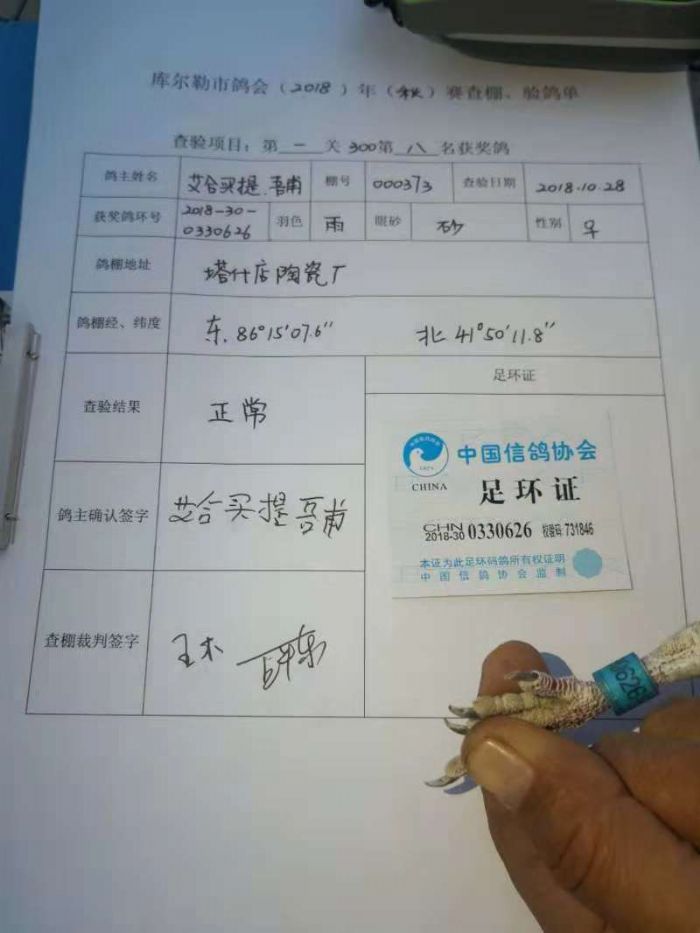 库尔勒市鸽会（2018）年（秋）赛查棚、验鸽单
查验项目：第 一 关 300第 八 名获奖鸽
鸽主姓名 艾合买提.吾甫 棚号 000373 查验日期 2018.10.28
获奖鸽环号 2018-30-0330626 羽色 雨 眼砂 砂 性别 ♀
鸽棚地址 塔什店陶瓷厂
鸽棚经、纬度 东.86°15'07.6" 北 41°50'11.8"
查验结果 正常
足环证
中国信鸽协会
CHINA
足环证
CHN
2018-30 0330626 校验码 731846
本证为此足环码鸽所有权证明
中国信鸽协会监制
鸽主确认签字 艾合买提吾甫
查棚裁判签字